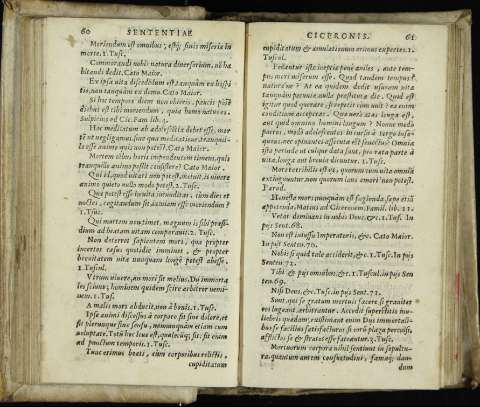 60 SENTENTIAE
Moriendum est omnibus; estq; finis miseriæ in
morte. 1. Tusc.
Commorandi nobis natura diversorium, nõ ha
bitandi dedit. Cato Maior.
Ex ipsa vita discedendum est, tanquam ex hospi
tio, non tanquam ex domo. Cato Maior.
Si hoc tempore diem non obieris, paucis post
diebus est tibi moriendum, quia homo natus es.
Sulpitius ad Cic. Fam. lib. 4.
Hoc meditatum ab adolescentia debet esse, mor
tẽ ut negligamus, sine qua meditatione tranquil-
lo esse animo quis potest? Cato Maior.
Mortem omnibus horis impendentem timens, quis
tranquillo animo possit consistere? Cato Maior.
Qui id, quod vitari non potest, metuit, is vivere
animo quieto nullo modo potest. 2. Tusc.
Quæ potest in vita iucunditas, cum dies et
noctes, cogitandum sit
1. Tusc.
Qui mortem non timet, magnum is sibi præsi
dium ad beatam vitam comparavit. 2. Tusc.
Non deterret sapientem mors, quæ propter
incertos casus quotidie imminet, & propter
brevitatem vitæ nunquam longè potest abesse.
1. Tuscul.
Utrum vivere, an mori sit melius, Dij immorta
les sciunt; hominem quidem scire arbitror nemi-
nem. 1. Tusc.
A malis mors abducit, non à bonis. 1. Tusc.
Ipse animi discessus à corpore fit sine dolore, et
fit plerunque sine sensu, nonnunquam etiam cum
voluptate. Totũ hoc leve est, qualecũq; sit: fit enim
ad punctum temporis. 1. Tusc.
Tunc erimus beati, cùm corporibus relictis,
cupiditatum
CICERONIS. 61
cupiditatum & æmulationum erimus expertes. 1.
Tuscul.
Pellantur istæ ineptiæ penè aniles, ante tem-
pus mori miserum esse. Quod tandem tempus?
naturæ ne? At ea quidem dedit usuram vitæ
tanquam pecuniæ, nulla præstituta die. Quid est
igitur quod querare, si repetit cum vult? ea enim
conditione acceperas. Quæ verò ætas longa est,
aut quid omnino homini longum? Nonne modò
pueros, modò adolescentes in cursu à tergo inse-
quens, nec opinantes assecuta est senectus? Omnia
ista perinde ut cuique data sunt, pro rata parte à
vita, longa aut brevia dicuntur. 1. Tusc.
Mors terribilis est ijs, quorum cum vita omnia
extinguuntur, non quorum laus emori non potest.
Parad.
Honesta mors nunquam est fugienda, sæpe etiã
appetenda. Matius ad Ciceronem, Famil. lib. 11.
Vetat dominans in nobis Deus, &c. 1. Tusc. In
pijs Sent. 68.
Non est iniussu Imperatoris, &c. Cato Maior.
In pijs Senten. 70.
Nobis si quid tale acciderit, &c. 1. Tusc. In pijs
Senten. 71.
Tibi & pijs omnibus, &c. 1. Tuscul. in pijs Sen
ten. 69.
Nisi Deus, &c. 1. Tusc. in pijs Sent. 72.
Sunt, qui se gratum mortuis facere, si graviter
eos lugeant, arbitrantur. Accedit superstitio mu-
liebris quædam; existimant enim Dijs immortali-
bus se facilius satisfacturos si eorũ plaga perculsi,
afflictos se & stratos esse fateantur. 3. Tusc.
Mortuorum corpora nihil sentiunt in sepultu-
ra, quantum autem consuetudini, famæq; dan-
dum